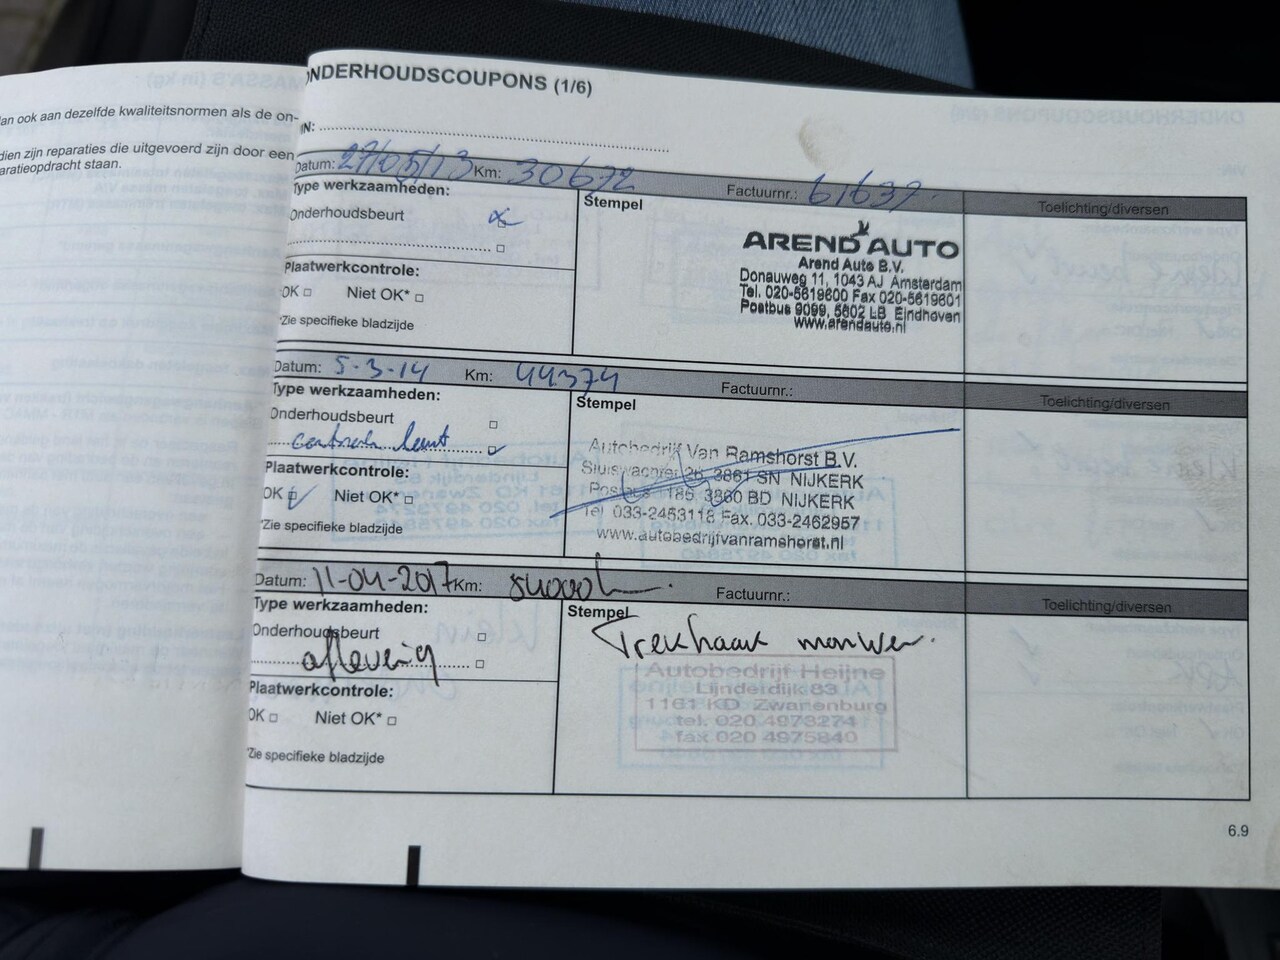 an ook aan dezelfde kwaliteitsnormen als de on-
dien zijn reparaties die uitgevoerd zijn door een
aratieopdracht staan.
ONDERHOUDSCOUPONS (1/6)
IN:
Datum: 27/05/13 Km: 30672 Factuurnr.: 61637
Type werkzaamheden: Stempel Toelichting/diversen
Onderhoudsbeurt
Plaatwerkcontrole:
OK Niet OK*
*Zie specifieke bladzijde
AREND AUTO
Arend Auto B.V.
Donauweg 11, 1043 AJ Amsterdam
Tel. 020-5619600 Fax 020-5619601
Postbus 9099, 5602 LB Eindhoven
www.arendauto.nl
Datum: 5-3-14 Km: 44374 Factuurnr.:
Type werkzaamheden: Stempel Toelichting/diversen
Onderhoudsbeurt
beurt
Plaatwerkcontrole:
OK Niet OK*
*Zie specifieke bladzijde
Autobedrijf Van Ramshorst B.V.
3861 SN NIJKERK
1185, 3860 BD NIJKERK
Tel 033-2453118 Fax. 033-2462957
www.autobedrijfvanramshorst.nl
Datum: 11-04-2017 Km: Factuurnr.:
Type werkzaamheden: Stempel Toelichting/diversen
Onderhoudsbeurt
aflevering
Plaatwerkcontrole:
OK Niet OK*
*Zie specifieke bladzijde
Trekhaak
Autobedrijf Heijne
Lijnderdijk 83
1161 KD Zwanenburg
tel. 020 4975274
fax 020 4975840
6.9